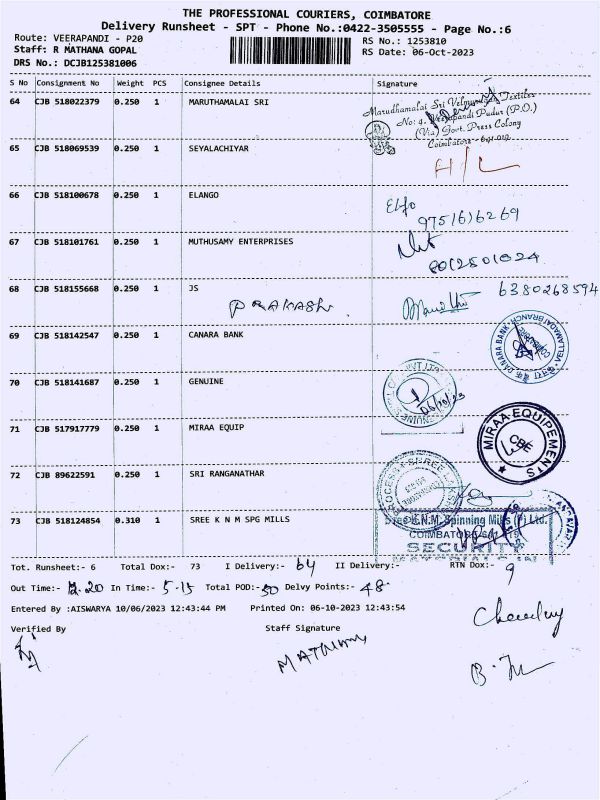 THE PROFESSIONAL COURIERS, COIMBATORE
Delivery Runsheet - SPT - Phone No.:0422-3505555 - Page No.:6
Route: VEERAPANDI - P20
RS No.: 1253810
Staff: R MATHANA GOPAL
RS Date: 06-Oct-2023
DRS No.: DCJB125381006
S No Consignment No Weight PCS Consignee Details Signature
64 CJB 518022379 0.250 1 MARUTHAMALAI SRI
Marudhamalai Sri Textiles
No: 4, Veerapandi Pudur (P.O.)
(Via) Govt. Press Colony
Coimbatore - 641 019
65 CJB 518069539 0.250 1 SEYALACHIYAR
H/L
66 CJB 518100678 0.250 1 ELANGO
9751616269
67 CJB 518101761 0.250 1 MUTHUSAMY ENTERPRISES
8012501024
68 CJB 518155668 0.250 1 JS
PRAKASH
6380268594
69 CJB 518142547 0.250 1 CANARA BANK
CANARA BANK
70 CJB 518141687 0.250 1 GENUINE
06/10/23
71 CJB 517917779 0.250 1 MIRAA EQUIP
MIRAA EQUIPEMENTS
CBE
72 CJB 89622591 0.250 1 SRI RANGANATHAR
73 CJB 518124854 0.310 1 SREE K N M SPG MILLS
Sree K.N.M. Spinning Mills (P) Ltd.
COIMBATORE
SECURITY
Tot. Runsheet:- 6 Total Dox:- 73 I Delivery:- 64 II Delivery:- RTN Dox:- 9
Out Time:- 2.20 In Time:- 5-15 Total POD:- 50 Delvy Points:- 48
Entered By :AISWARYA 10/06/2023 12:43:44 PM Printed On: 06-10-2023 12:43:54
Verified By Staff Signature